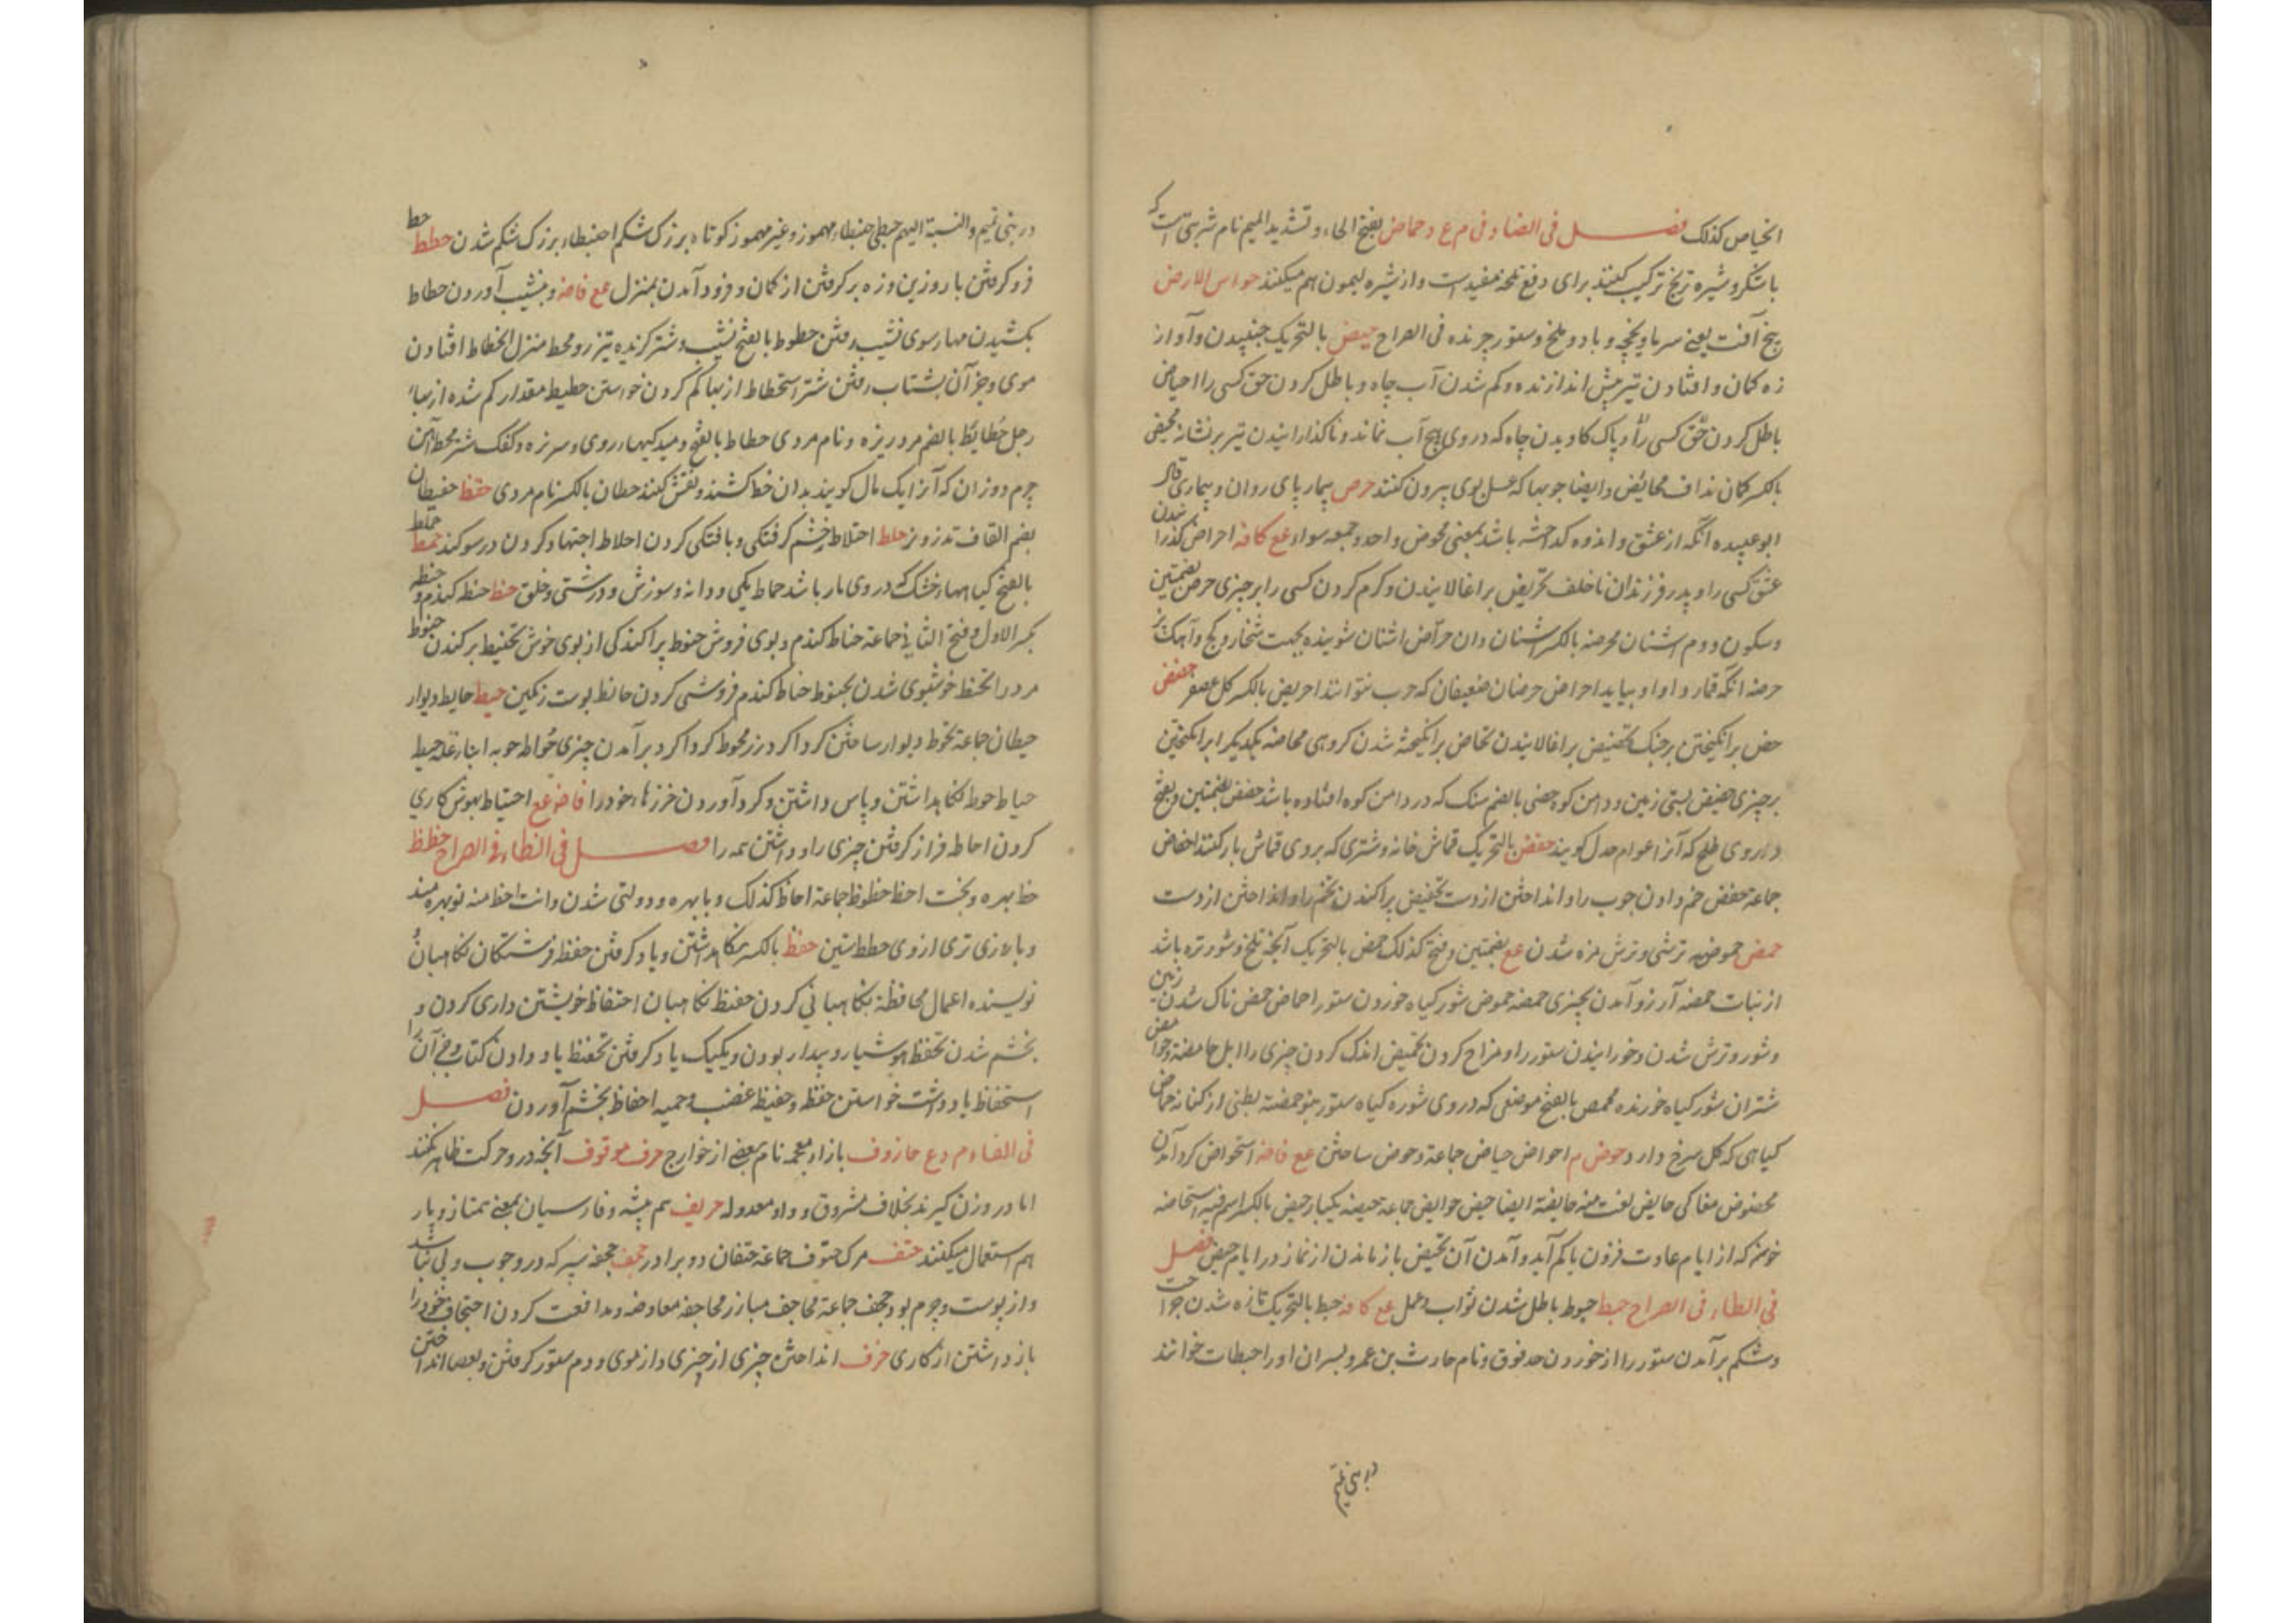 انحیاص کذلک فصل فی الضاد فی م ع د حماض بفتح الحاء و تشدید المیم نام شربتی است که
با شکر و شیره ترنج ترکیب کنند برای دفع تخمه مفید است و از شیره لیمون هم میکنند حواس الارض
پنج آفت یعنی سرما و یخچه و باد و ملخ و ستور چرنده فی الصراح حبض بالتحریک جنبیدن و آواز
زه کمان و افتادن تیر پیش اندازنده و کم شدن آب چاه و باطل کردن حق کسی را احباض
باطل کردن حق کسی را و پاک کاویدن چاه که در وی هیچ آب نماند و ناگذارانیدن تیر بر نشانه محبض
بالکسر کمان نداف محابض و ایضا چوبها که عسل بوی بیرون کنند حرض بیمار پای روان و بیماری قال
ابو عبیده آنکه از عشق و اندوه کداخته باشد بمعنی محرض و احد و جمعه سواء عع کافه احراض کذرا شدن
عشق کسی را و پدر فرزندان ناخلف تحریض برا غالانیدن و کرم کردن کسی را بر چیزی حرض بضمتین
و سکون دوم اشنان محرضه بالکسر اشنان دان حراض اشنان شوینده بجهت شخار و کچ و آهک پز
حرضه آنکه قمار و او او بیاید احراض حرضان ضعیفان که حرب نتوانند احریض بالکسر کل عصفر حضض
حض برانکیختن بر جنک تحضیض برا غالانیدن تحاض برانکیخته شدن کروهی محاضه یکدیکر را برانکیختن
بر چیزی حضیض پستی زمین و دامن کوه حضی بالضم سنک که در دامن کوه افتاده باشد حضض بضمتین و بفتح
داروی طلخ که آنرا عوام حدل کویند حفض بالتحریک قماش خانه و شتری که بروی قماش بار کنند احفاض
جماعة حفض خم دادن چوب را و انداختن از دست تحفیض پراکندن تخم را و انداختن از دست
حمض حموضه ترشی و ترش مزه شدن عع بضمتین و فتح کذلک حمض بالتحریک آنچه تلخ و شور مزه باشد
از نبات حمضه آرزو آمدن بچیزی حمضه حموض شور کیاه خوردن ستور احماض حمض ناک شدن زمین
و شور و ترش شدن و خورانیدن ستور را و مزاح کردن تحمیض اندک کردن چیزی را ابل حامضة و حوامض
شتران شور کیاه خورنده محمض بالفتح موضعی که در وی شوره کیاه ستور بنو حمضة بطنی از کنانه حماض
کیاهی که کل سرخ دارد حوض م احواض حیاض جماعة و حوض ساختن عع فاضه استحواض کرد آمدن
محضوض مغاکی حایض لغت منه حایضة ایضا حیض حوایض جماعة حیضه یکبار حیض بالکسر اسم فیه استحاضه
خونی که از ایام عادت فزون یا کم آید و آمدن آن تحیض باز ماندن از نماز در ایام حیض فصل
فی الطاء فی الصراح حبط حبوط باطل شدن ثواب و عمل عع کافه حبط بالتحریک تازه شدن جراحت
و شکم برآمدن ستور را از خوردن حدقوق و نام حارث بن عمرو پسران او را حبطات خوانند
در بنی تمیم
در بنی تمیم و النسبة الیهم حبطی حبنطاء مهموز و غیر مهموز کوتاه بزرک شکم احبنطاء بزرک شکم شدن حطط حط
فرو کرفتن بار و زین و زه بر کرفتن از کمان و فرود آمدن بمنزل عع فاضه و بنشیب آوردن حطاط
بکشیدن مهار سوی نشیب رفتن حطوط بالفتح نشیب و شتر کزیده تیز رو محط منزل انحطاط افتادن
موی و جز آن بشتاب رفتن شتر استحطاط از بها کم کردن خواستن حطیط مقدار کم شده از بهاء
رجل حطایط بالضم مرد ریزه و نام مردی حطاط بالفتح دمیدکیهاء روی و سر نره و کفک شتر محط آهن
چرم دوزان که آنرا یک مال کویند بدان خط کشند و نقش کنند حطان بالکسر نام مردی حقط حیقطان
بضم القاف تذرو نر حلط احتلاط خشم کرفتکی و بافتکی کردن احلاط اجتهاد کردن در سوکند حمط
بالفتح کیاهها خشک که در وی مار باشد حماط یکی و دانه و سوزش و درشتی و خلق حنط حنطه کندم و
بکسر الاول و فتح الثانی جماعة حناط کندم و بوی فروش حنوط پراکندکی از بوی خوش تحنیط برکندن حنوط
مرده را تحنط خوشبوی شدن بحنوط حناط کندم فروشی کردن حانط بوت زکمین حیط حایط دیوار
حیطان جماعة تحوط دیوار ساختن کردا کرد رز محوط کردا کرد برآمدن چیزی حواط حوبه انبار غله حیط
حیاط حوط نکاهداشتن و پاس داشتن و کرد آوردن خرزها خود را فاضه عع احتیاط بهوش کاری
کردن احاطه فراز کرفتن چیزی را و داشتن همه را فصل فی الظاء فی الصراح حظظ
حظ بهره و بخت احظ حظوظ جماعة احاظ کذلک و با بهره و دولتی شدن و انت احظ منه تو بهره مند
و با روزی تری از وی حظظ بستین حفظ بالکسر نکاهداشتن و یاد کرفتن حفظه فرشتکان نکاهبان
نویسنده اعمال محافظة نکاهبانی کردن حفیظ نکاهبان احتفاظ خویشتن داری کردن و
بخشم شدن تحفظ هوشیار و بیدار بودن و یکیک یاد کرفتن تحفیظ یاد دادن کتاب و جز آن را
استحفاظ یاد داشت خواستن حفظ و حفیظه غضب و حمیه احفاظ بخشم آوردن فصل
فی الفاء م دع حازوف بازاء معجمه نام بعضی از خوارج حرف موقوف آنچه در و حرکت ظاهر نکنند
اما در وزن کیرند بخلاف مشروق و واو معدوله حریف هم پیشه و فارسیان بمعنی ممتاز و یار
هم استعمال میکنند حتف مرک حتوف جماعة حتفان دو برادر حجف حجفه سپر که در و چوب و پی نباشد
و از پوست و چرم بود حجف جماعة محاجف مبارز محاجفه معاوضه و مدافعت کردن احتجاف خود را
باز داشتن از کاری حذف انداختن چیزی از چیزی و از موی و دم ستور کرفتن و بعصا انداختن